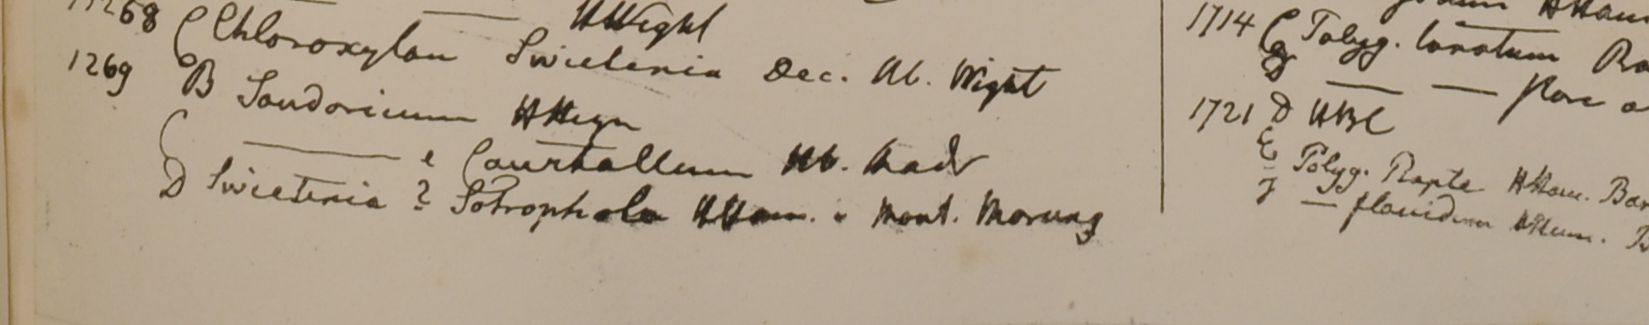 HWight
1268 C Chloroxylon Swietenia Dec. Hb. Wight
1269 B Sandoricum HHeyn
C ——— e Courtallum Hb. Madr
D Swietenia ? Sotrophola HHam. e Mont. Morung
HHam
1714 C Polyg. lanatum Ro
D — — flore a
1721 D HBC
E Polyg. Rapta HHam. Bar
F — floridum HHam.